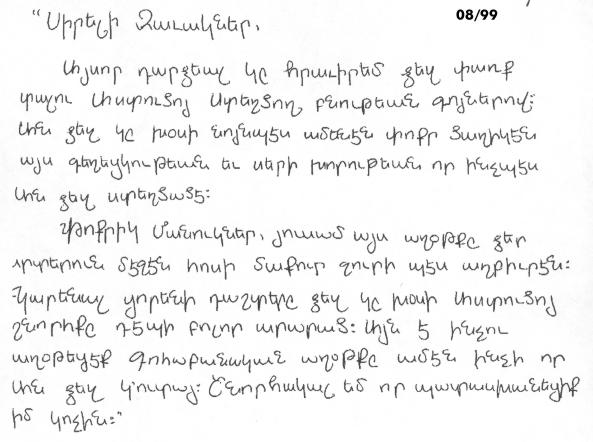 08/99
"Սիրելի Զաւակներ,
Այսօր դարձեալ կը հրաւիրեմ ձեզ փառք
տալու Աստուծոյ Ստեղծող բնութեան գոյներով:
Ան ձեզ կը խօսի նոյնպէս ամենէն փոքր ծաղիկէն
այս գեղեցկութեան եւ սերի խորութեան որ ինչպէս
Ան ձեզ ստեղծած է:
Փոքրիկ Մանուկներ, յուսամ այս աղօթքը ձեր
սրտերուն մէջէն հոսի մաքուր ջուրի պէս աղբիւրէն:
Կարենալ ցորենի դաշտերը ձեզ կը խօսի Աստուծոյ
շնորհքը դէպի բոլոր արարած: Այն է ինչու
աղօթեցէք Գոհաբանական աղօթքը ամէն ինչի որ
Ան ձեզ կ'ուտայ: Շնորհակալ եմ որ պատասխանեցիք
իմ կոչին:"